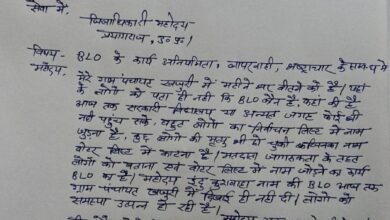 सेवा में,
जिलाधिकारी महोदय
प्रयागराज, उ०प्र०।
विषय - BLO के कार्य अनियमितता, लापरवाही, भ्रष्टाचार के सम्बन्ध में
महोदय,
मेरे ग्राम पंचायत खजुरी में महीने भर बीतने को है। यहां
के लोगों को पता ही नहीं कि BLO कौन है, कहां की है
आज तक सरकारी विद्यालय या अन्यत्र जगह कोई भी
नहीं पहुंच सके, बहुत लोगों का निर्वाचन लिस्ट में नाम
जुड़ना है। कुछ लोगों की मृत्यु भी हो चुकी जिनका नाम
वोटर लिस्ट में काटना है। मतदाता जागरूकता के तहत
लोगों को बताना एवं वोटर लिस्ट में नाम जोड़ने का कार्य
BLO का है। महोदय इंदु कुशवाहा नाम की BLO आज तक
ग्राम पंचायत खजुरी में दिखाई ही नहीं दी। लोगों को
समस्या उत्पन्न हो रही है।
महोदय